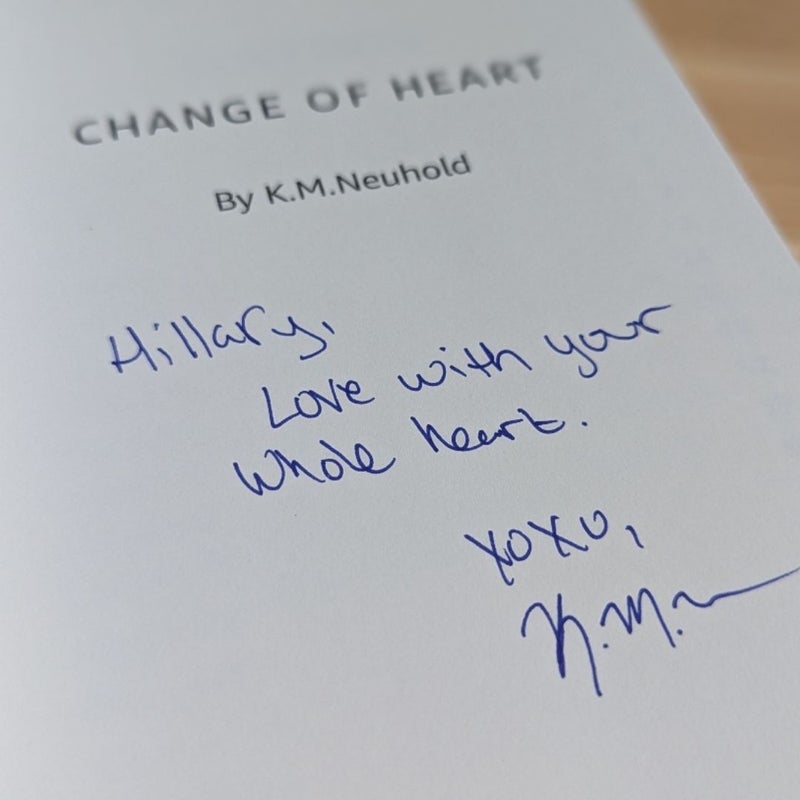 CHANGE OF HEART
By K.M.Neuhold
Hillary,
Love with your
whole heart.
xoxo,
K.M.